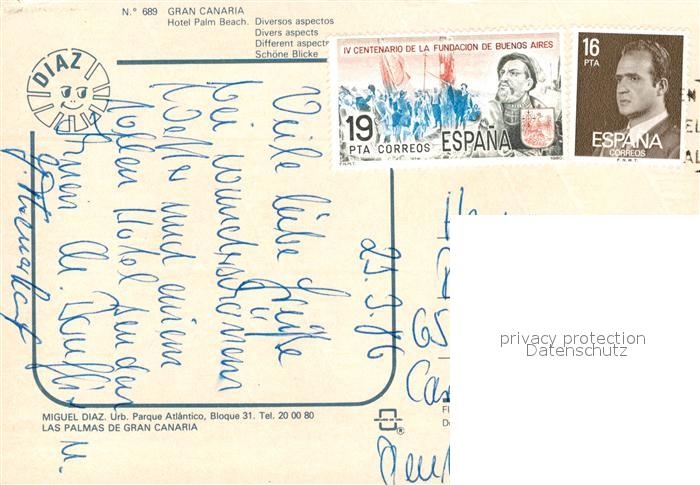 N.º 689 GRAN CANARIA
Hotel Palm Beach. Diversos aspectos
Divers aspects
Different aspects
Schöne Blicke
DIAZ
IV CENTENARIO DE LA FUNDACION DE BUENOS AIRES
19
PTA CORREOS ESPAÑA
F.N.M.T. 1980
16
PTA
ESPAÑA
CORREOS
F.N.M.T.
25.3.86
Viele liebe Grüße
bei wunderschönem
und einem
tollen Hotel senden
65
privacy protection
Datenschutz
MIGUEL DIAZ. Urb. Parque Atlántico, Bloque 31. Tel. 20 00 80
LAS PALMAS DE GRAN CANARIA